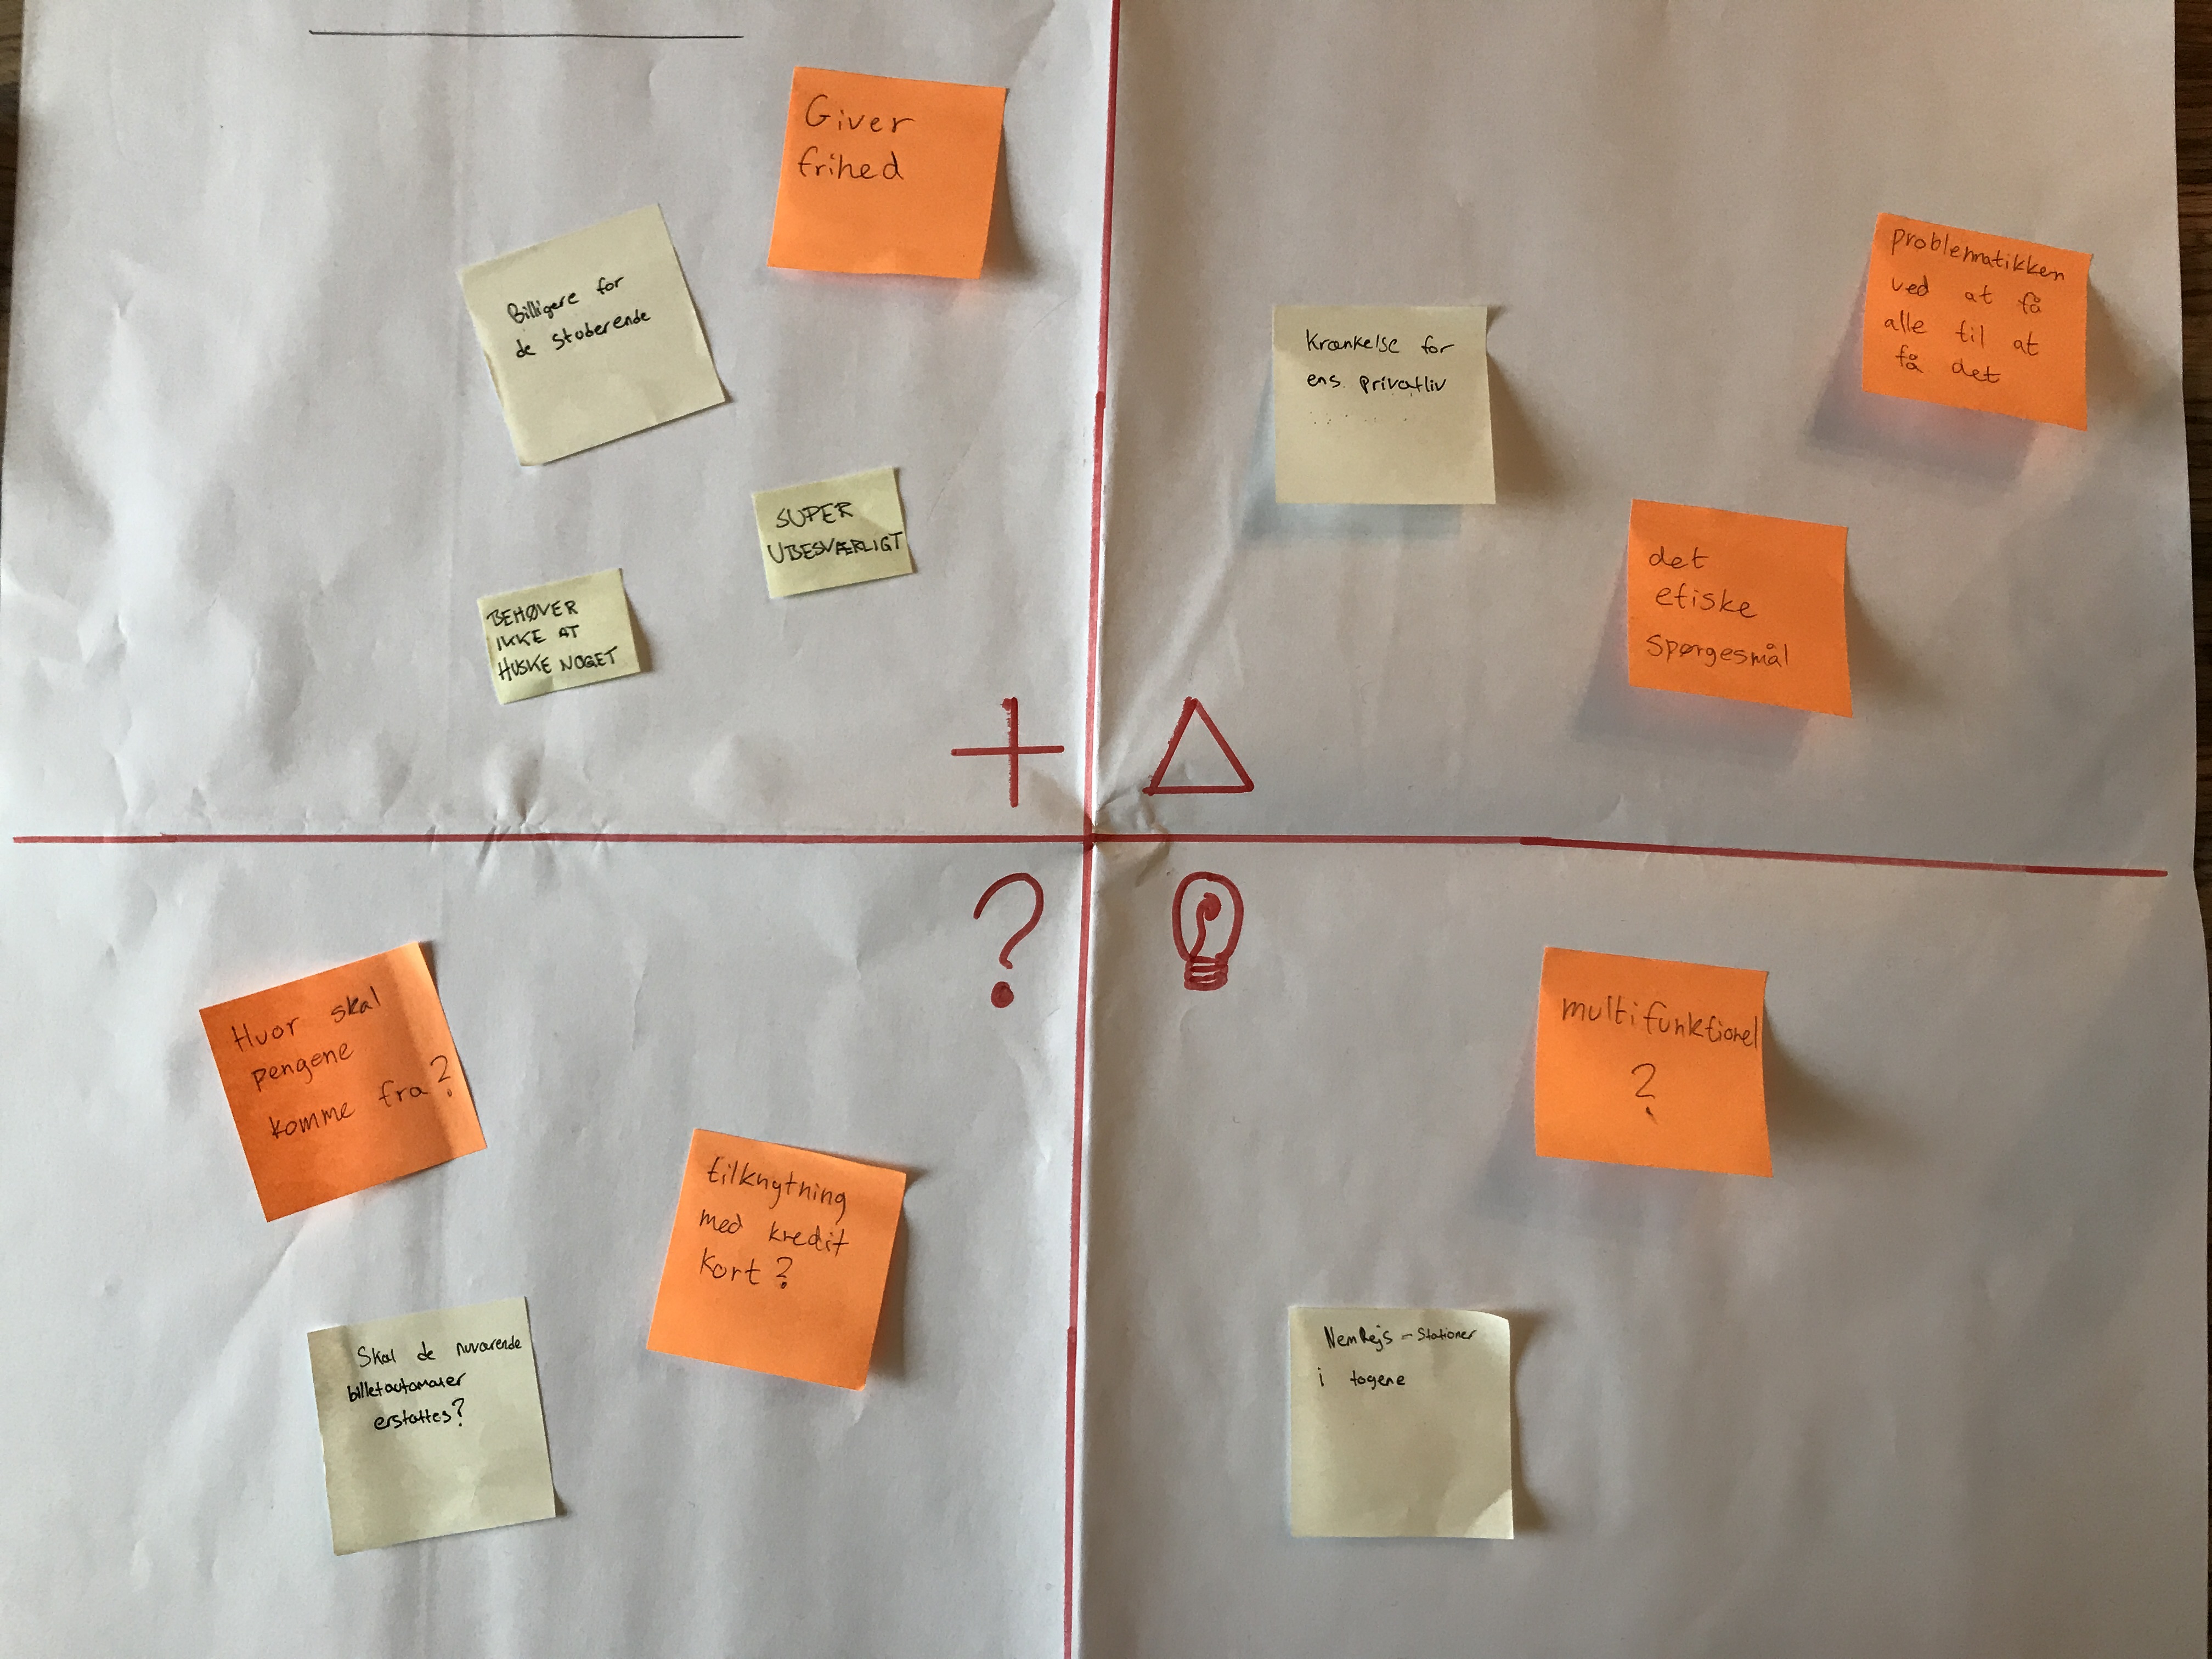 Giver
frihed
Billigere for
de studerende
SUPER
UBESVÆRLIGT
BEHØVER
IKKE AT
HUSKE NOGET
+
Krænkelse for
ens privatliv
problematikken
ved at få
alle til at
få det
det
etiske
spørgesmål
?
Hvor skal
pengene
komme fra?
tilknytning
med kredit
kort?
Skal de nuværende
billetautomater
erstattes?
multifunktionel
?
NemRejs - Stationer
i togene